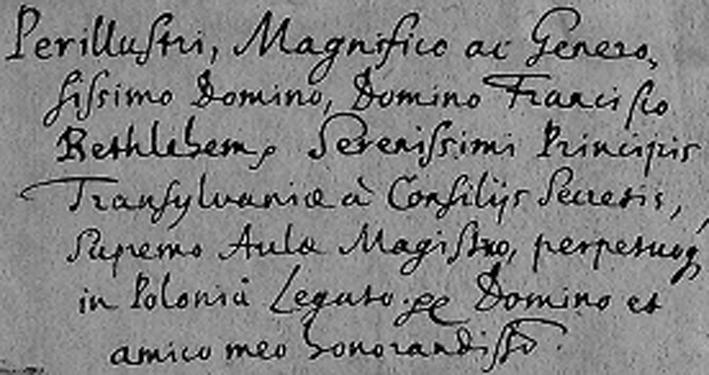 Perillustri, Magnifico ac Genero,
sissimo Domino, Domino Francisco
Bethlehem, Serenissimi Principis
Transylvaniæ à Consilijs Secretis,
Supremo Aulæ Magistro, perpetuoq
in Poloniâ Legato &c Domino et
amico meo honorandisso